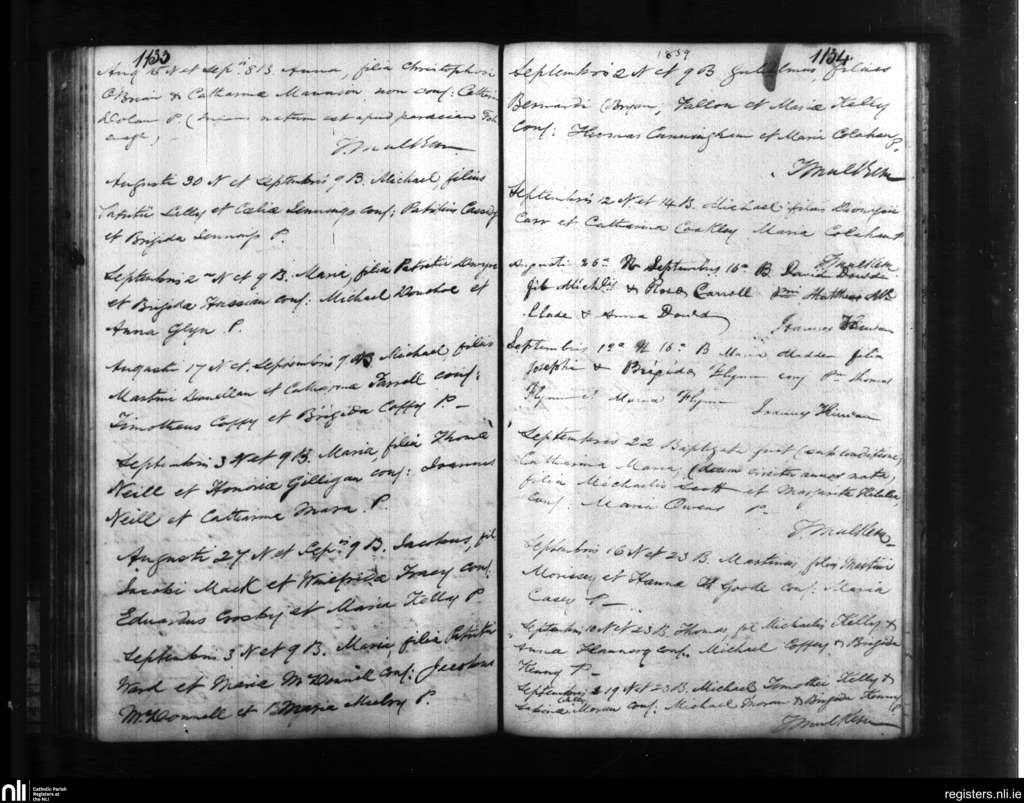 1133
Aug 15 N et Sepr. 8 B. Anna, filia Christophori
O'Brien & Catharina Mannion non conj: Catherin
Dolan P. (
T. Mulkern
Augusti 30 N et Septembris 9 B. Michael filius
Patritii Lilly et Celia Jennings conj: Patritius Cassidy
et Brigida Jennings P.
Septembris 2 N et 9 B. Maria, filia Patritii Dwyer
et Brigida Hassian conj: Michael Donohoe et
Anna Glyn P.
Augusti 17 N et Septembris 9 B Michael filius
Martini Donnellan et Catharina Farrell conj:
Timotheus Coffy et Brigida Coffy P. –
Septembris 3 N et 9 B. Maria, filia Thomæ
Neill et Honora Gilligan conj: Joannes
Neill et Catharina Mara P.
Augusti 27 N et Sepr. 9 B. Jacobus, fil
Jacobi Mack et Winefrida Tracy conj:
Eduardus Crosby et Maria Kelly P
Septembris 3 N et 9 B. Maria filia Patritii
Ward et Maria McDonnell conj: Jacobus
McDonnell et Maria P.
1859
1134
Septembris 2 N et 9 B Gulielmus filius
Bernardi (Bryan) Fallon et Maria Kelly
conj: Thomas Cunningham et Maria Colahan P.
T Mulkern
Septembris 12 N et 14 B. Michael filius Dionysii
Carr et Catharina Coakley Maria Colahan P
T Mulkern
Augusti 26a N Septembris 16a B David Dowd
fil Michlis & Rosa Carroll Matthias
Slade & Anna Dowd
Joannes Kirwan
Septembris 16a B Maria Madden filia
Josephi & Brigida Flynn conj Thomas
Flynn et Maria Flynn Joannes Kirwan
Septembris 22 Baptizata fuit (sub conditione)
Catharina Maria, (decem circiter annos nata)
filia Michaelis Scott et Margarita
conj: Maria Owens P.
T. Mulkern
Septembris 16 N et 23 B. Martinus filius Martini
Morissey et Hanna Goode conj: Maria
Casey P –
Septembris N et 23 B. Thomas fil Michaelis Kelly &
Anna Flannery conj. Michael Coffey & Brigida
Kenny P –
Septembris 19 N et 23 B. Michael Timothei Kelly &
Moran conj: Michael Moran & Brigida Kenny P
T Mulkern
nli
Catholic Parish
Registers at
the NLI
registers.nli.ie